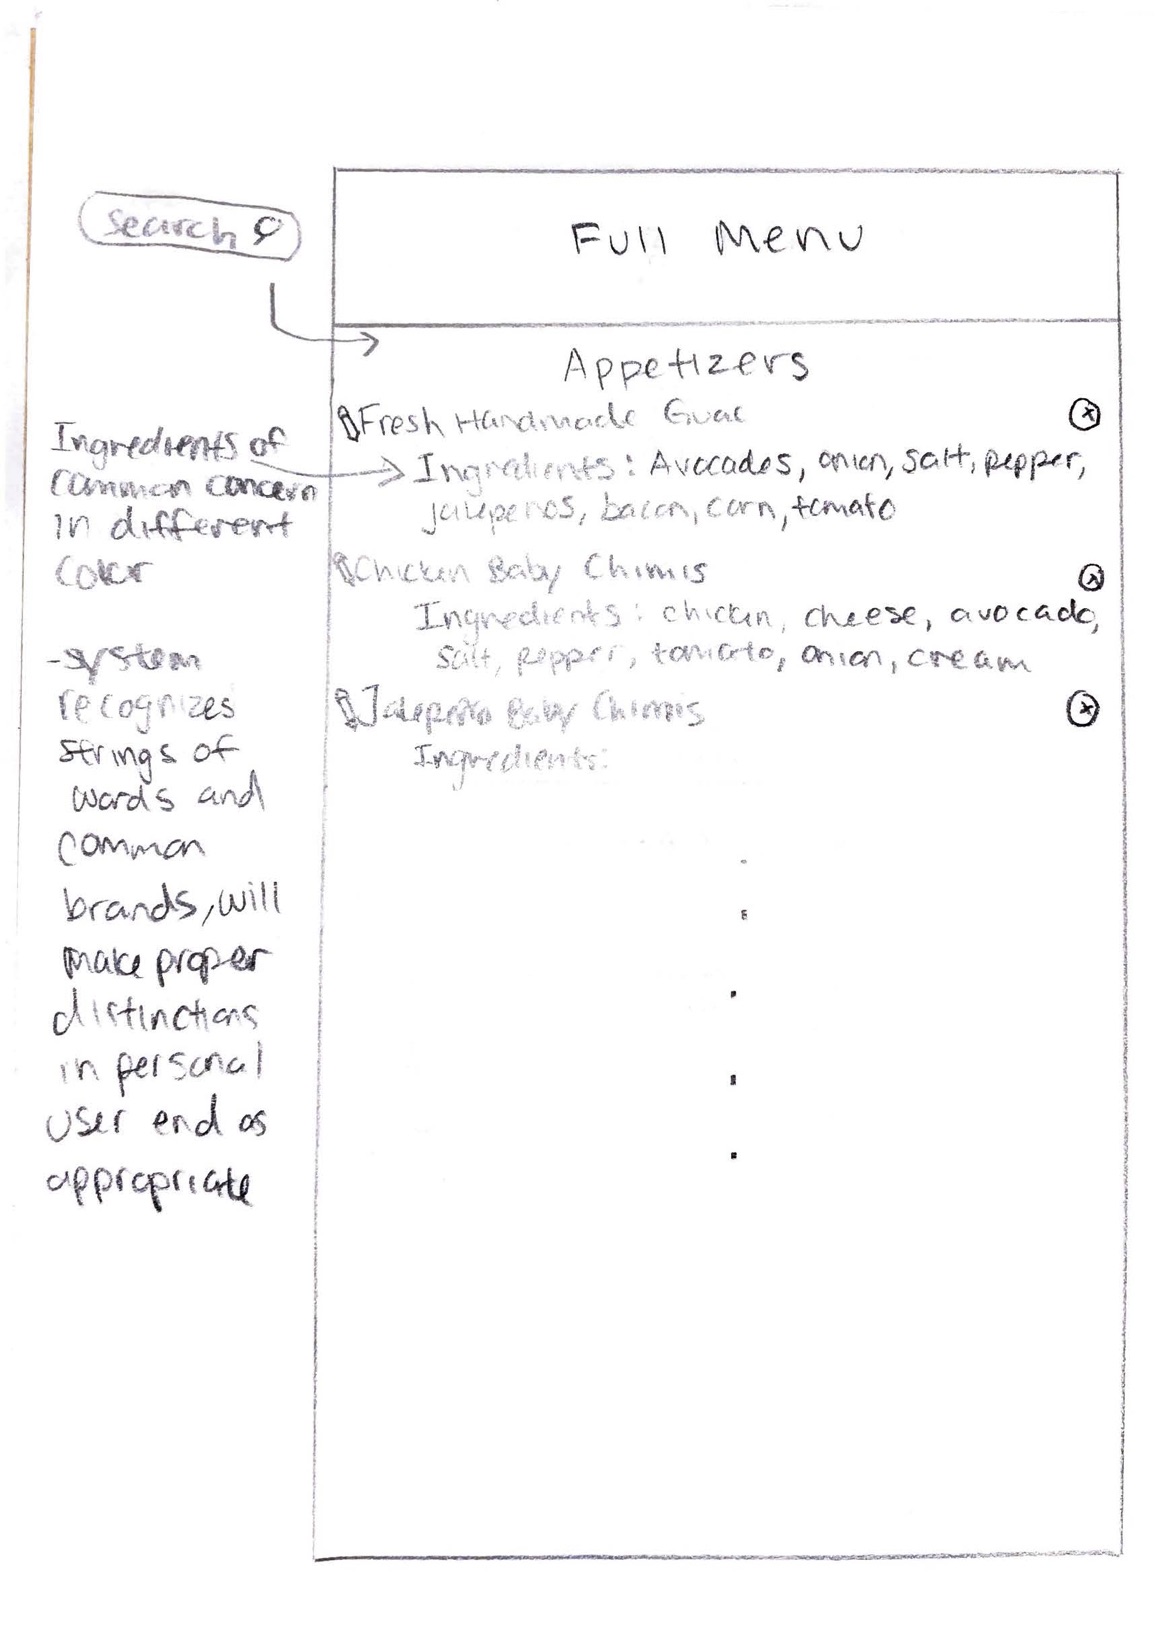 Search
Full Menu
Appetizers
Fresh Handmade Guac
Ingredients: Avocados, onion, salt, pepper,
jalepenos, bacon, corn, tomato
Chicken Baby Chimis
Ingredients: chicken, cheese, avocado,
salt, pepper, tomato, onion, cream
Jalepeño Baby Chimis
Ingredients:
Ingredients of
common concern
in different
color
-system
recognizes
strings of
words and
common
brands, will
make proper
distinctions
in personal
user end as
appropriate